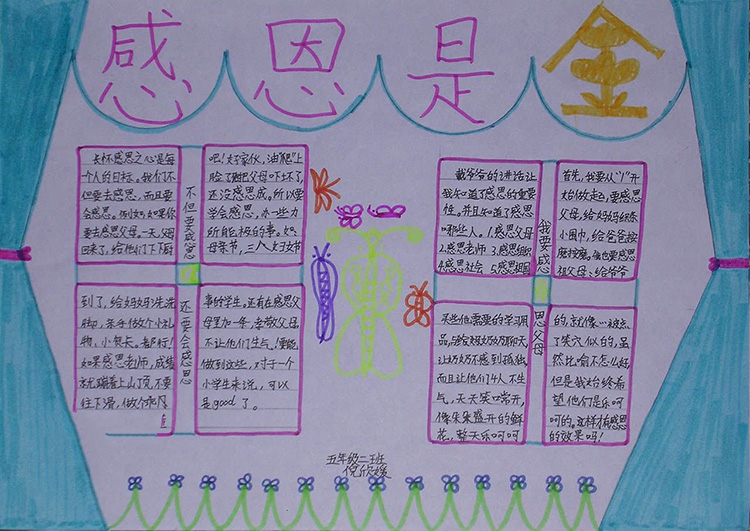 感恩是金
长怀感恩之心是每
个人的目标。我们不
但要去感恩，而且要
会感恩。例如如果你
要去感恩父母。一天，父母
回来了，给他们下下厨
吧！好家伙，油“爬”上
脸了把父母吓坏了，
还没感恩成。所以要
学会感恩，办一些力
所能极的事。如
母亲节，三八妇女节
到了，给妈妈洗洗
脚，亲手做个小礼
物，小贺卡。都行！
如果感恩老师，成绩
就蹦着上山了，不要
往下滑，做个
事的学生。还有在感恩父
母里加一条，孝敬父母，
不让他们生气。
做到这些，对于一个
小学生来说，可以
是good了。
不但要感恩
还要会感恩
戴爷爷的3讲话让
我知道了感恩的重要
性。并且知道了感恩
哪些人。1.感恩父母
2.感恩老师 3.感恩组织
4.感恩社会 5.感恩祖国
首先，我要从“1”开
始做起，要感恩
父母，给妈妈织条
小围巾，给爸爸按
摩按摩。
祖父母：给爷爷
买些他需要的学习用
品，给奶奶聊聊天，
让奶奶不感到孤独，
而且让他们4人不生
气，天天笑口常开，
像朵朵盛开的鲜
花，整天乐呵呵
的，就像
了笑穴似的，虽
然比喻不怎么好，
但是我始终希
望他们是乐呵
呵的。这样才有感恩
的效果吗！
我要感恩
恩父母
五年级二班
倪欣媛